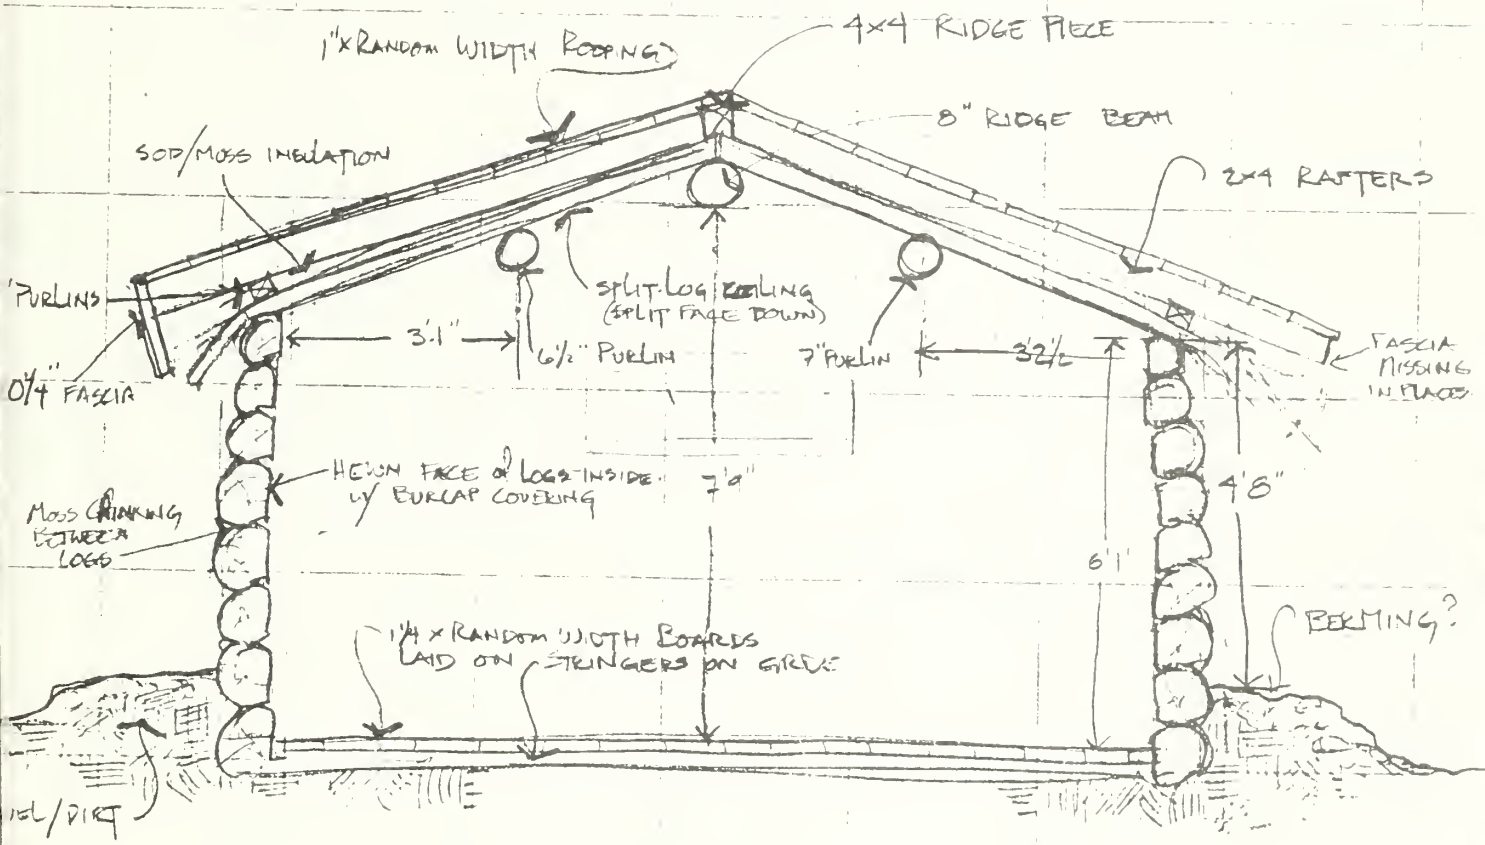 1" x RANDOM WIDTH ROOFING
4x4 RIDGE PIECE
8" RIDGE BEAM
SOD/MOSS INSULATION
2x4 RAFTERS
PURLINS
SPLIT-LOG CEILING
(SPLIT FACE DOWN)
3'1"
6 1/2" PURLIN
7" PURLIN
3'2 1/2
FASCIA
MISSING
IN PLACES
FASCIA
HEWN FACE of LOGS-INSIDE
W/ BURLAP COVERING
7'9"
4'8"
MOSS CHINKING
BETWEEN
LOGS
6'1"
BERMING?
1 1/4 x RANDOM WIDTH BOARDS
LAID ON STRINGERS ON GRDE
/DIRT